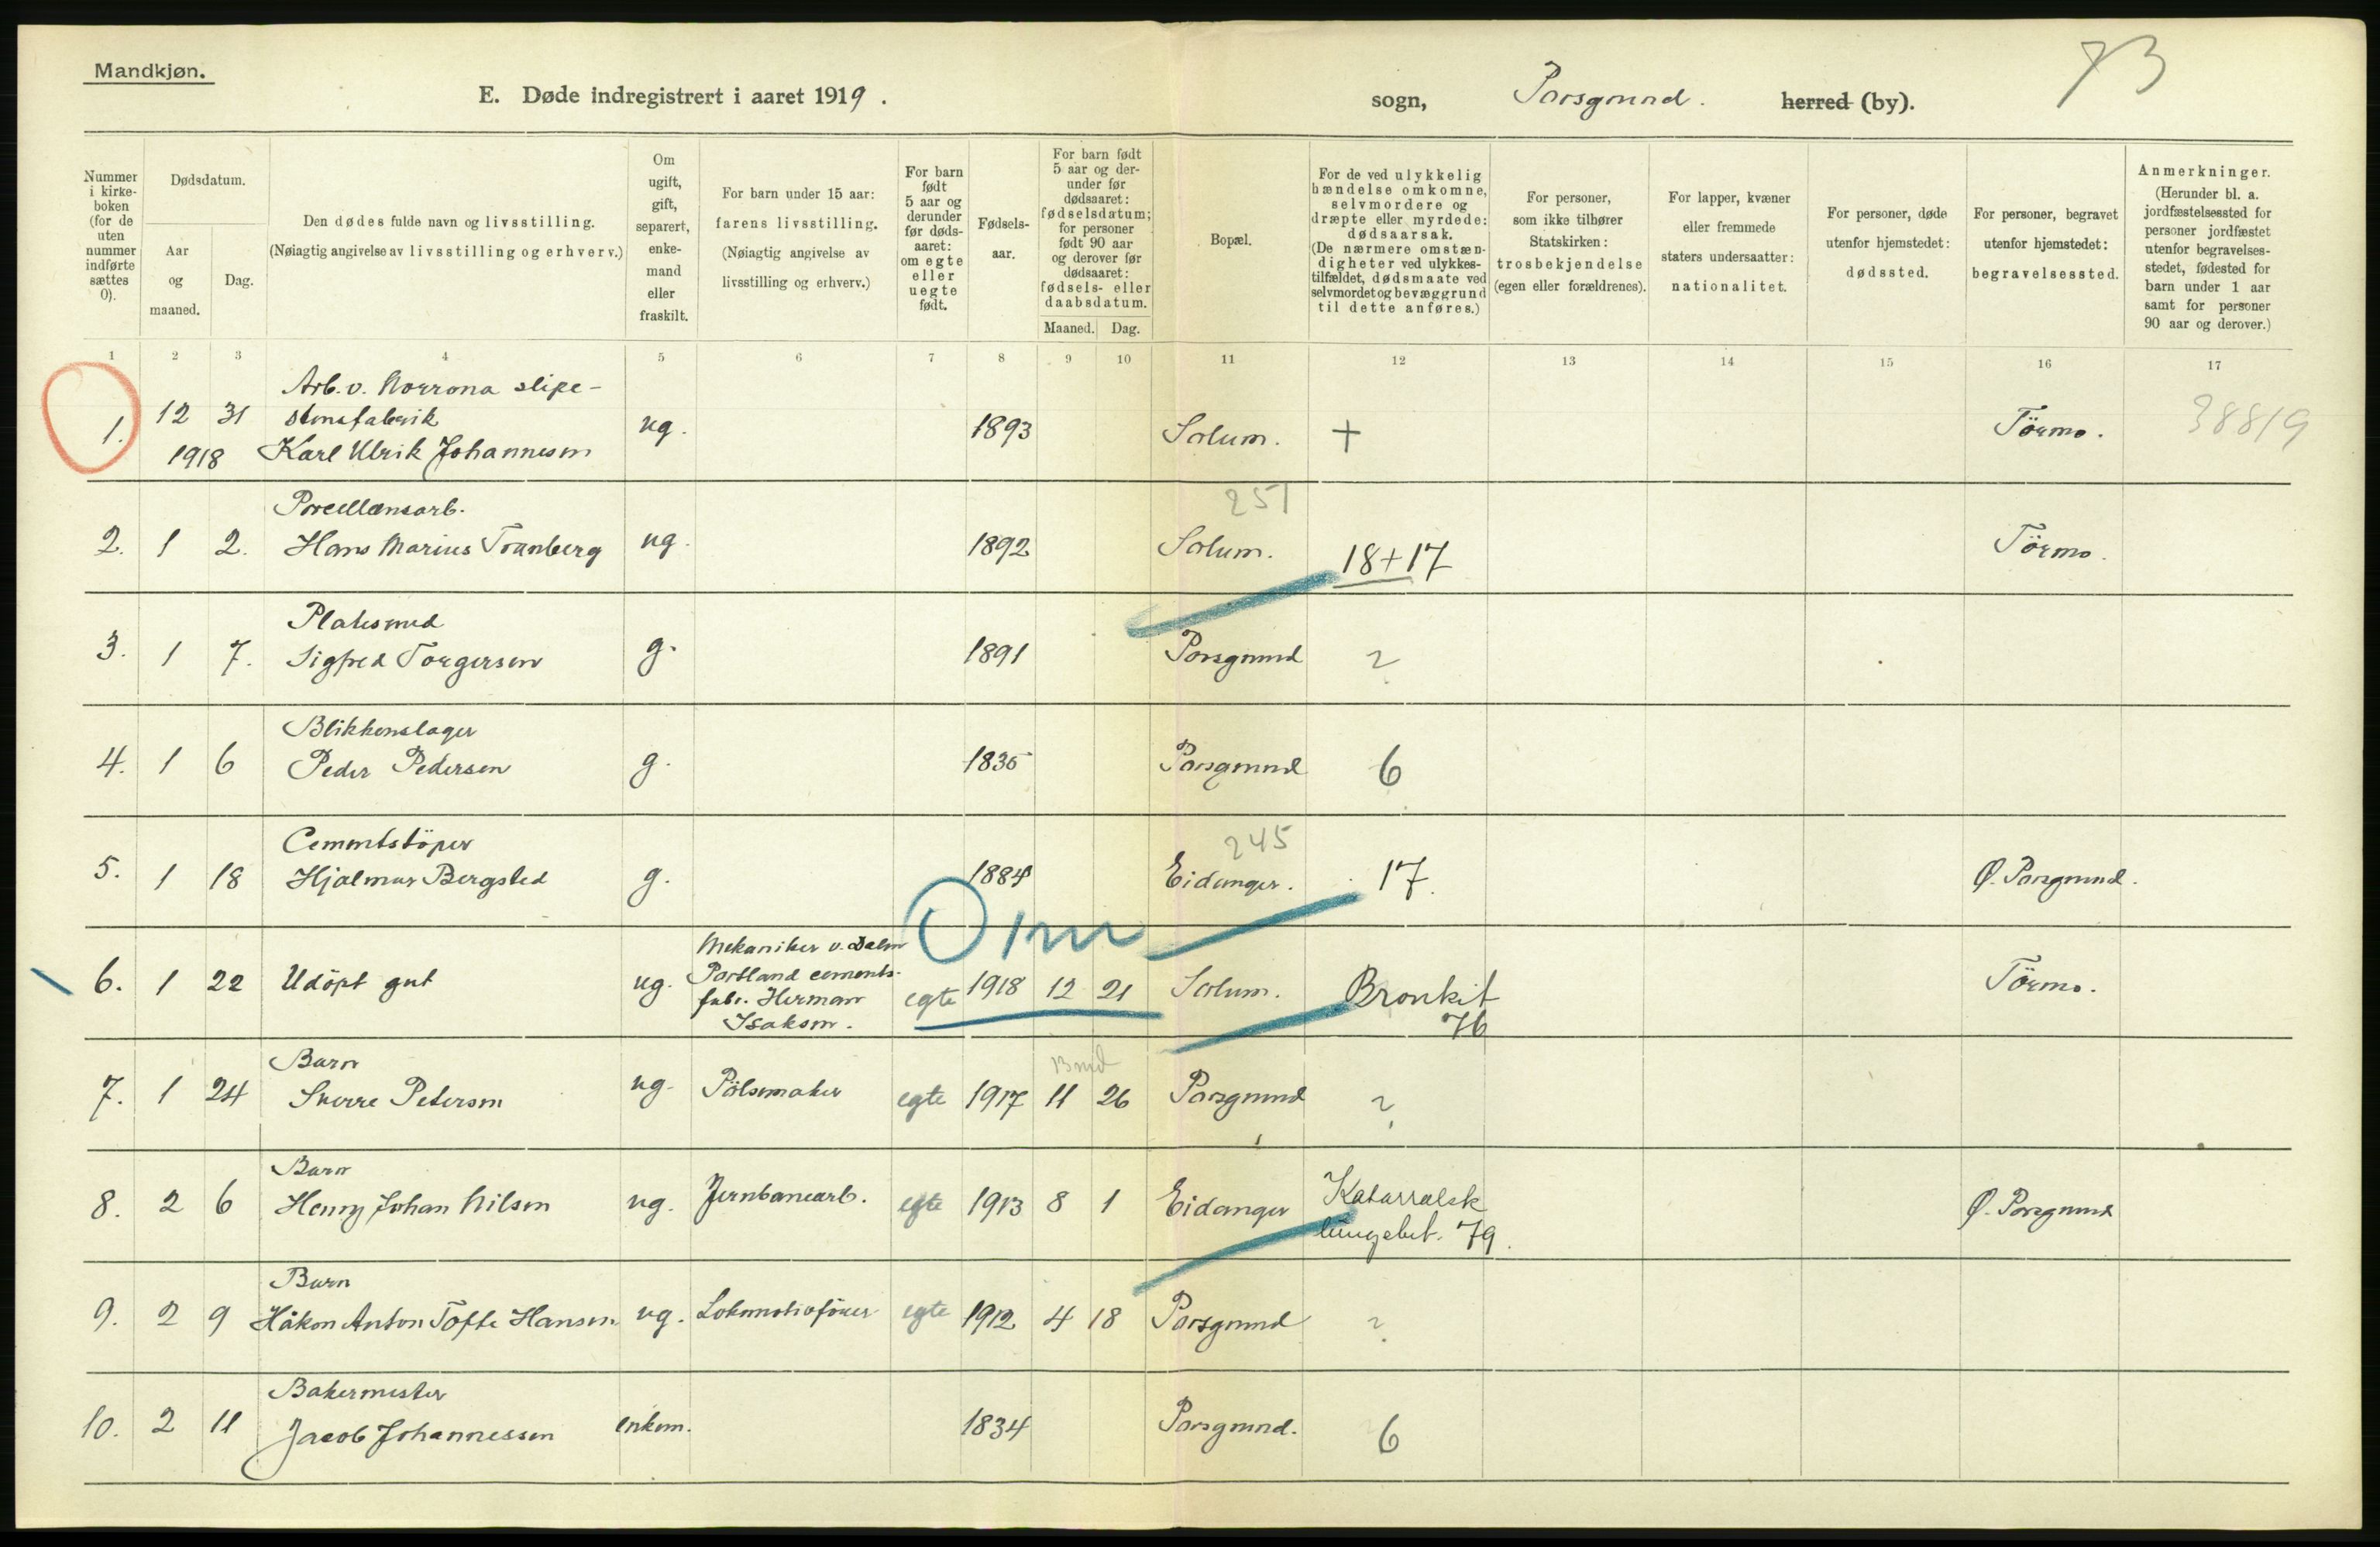 Mandkjøn.
73
E. Døde indregistrert i aaret 1919.
sogn, Porsgrund. herred (by).
Nummer i kirkeboken (for de uten nummer indførte sættes 0).
Dødsdatum.
Aar og maaned.
Dag.
Den dødes fulde navn og livsstilling.
(Nøiagtig angivelse av livsstilling og erhverv.)
Om ugift, gift, separert, enkemand eller fraskilt.
For barn under 15 aar: farens livsstilling.
(Nøiagtig angivelse av livsstilling og erhverv.)
For barn født 5 aar og derunder før dødsaaret: om egte eller uegte født.
Fødselsaar.
For barn født 5 aar og derunder før dødsaaret: fødselsdatum; for personer født 90 aar og derover før dødsaaret: fødsels- eller daabsdatum.
Maaned. Dag.
Bopæl.
For de ved ulykkelig hændelse omkomne, selvmordere og dræpte eller myrdede: dødsaarsak.
(De nærmere omstændigheter ved ulykkestilfældet, dødsmaate ved selvmordet og bevæggrund til dette anføres.)
For personer, som ikke tilhører Statskirken: trosbekjendelse (egen eller forældrenes).
For lapper, kvæner eller fremmede staters undersaatter: nationalitet.
For personer, døde utenfor hjemstedet: dødssted.
For personer, begravet utenfor hjemstedet: begravelsessted.
Anmerkninger.
(Herunder bl. a. jordfæstelsessted for personer jordfæstet utenfor begravelsesstedet, fødested for barn under 1 aar samt for personer 90 aar og derover.)
1 2 3 4 5 6 7 8 9 10 11 12 13 14 15 16 17
Arb. v. Norrona slipe-
1. 12 31 stensfabrik ug. 1893 Solum. + Törmo. 38819
1918 Karl Ulrik Johannesen
Porcellænsarb. 251
2. 1 2. Hans Marius Tranberg ug. 1892 Solum. 18+17 Törmo.
Platesmed
3. 1 7. Sigfred Torgersen g. 1891 Porsgrund ?
Blikkenslager
4. 1 6 Peder Pedersen g. 1835 Porsgrund 6
Cementstöper 245
5. 1 18 Hjalmar Bergsted g. 1884 Eidanger. 17. Ø. Porsgrund.
0 1 m
Mekaniker v. Dalen
6. 1 22 Udöpt gut ug. Portland cements- egte 1918 12 21 Solum. Bronkit Törmo.
fabr. Herman 76
Isaksen.
Barn 13 md
7. 1 24 Sverre Petersen ug. Pölsemaker egte 1917 11 26 Porsgrund ?
Barn
8. 2 6 Henry Johan Nilsen ug. Jernbanearb. egte 1913 8 1 Eidanger Katarralsk Ø. Porsgrund
lungebet. 79.
Barn
9. 2 9 Håkon Anton Tofte Hansen ug. Lokomotivförer egte 1912 4 18 Porsgrund ?
Bakermester
10. 2 11 Jacob Johannessen enkem. 1834 Porsgrund. 6